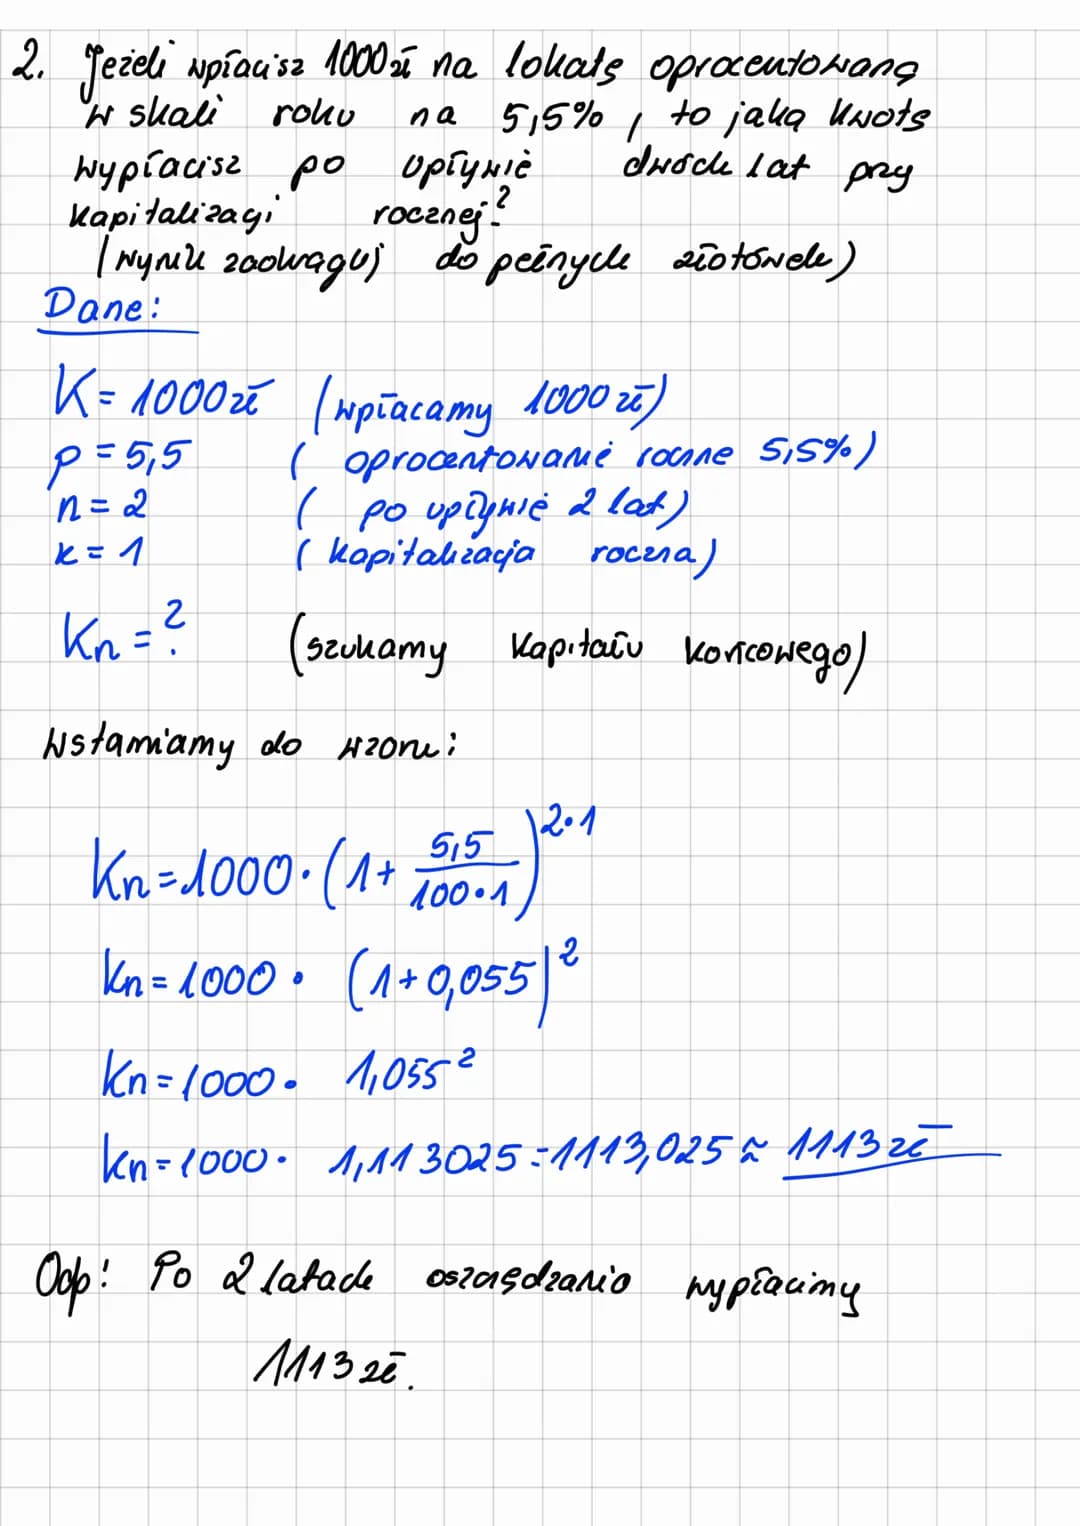 2. Jeżeli wpłacisz 1000zł na lokatę oprocentowaną
w skali roku na 5,5%, to jaką kwotę
wypłacisz po upłynie dwóch lat przy
kapitalizacji rocznej?
(wynik zaokrąglij do pełnych złotówek)
Dane:
K = 1000zł (wpłacamy 1000 zł)
p = 5,5 (oprocentowanie roczne 5,5%)
n = 2 (po upłynie 2 lat)
k = 1 (kapitalizacja roczna)
Kn = ? (szukamy kapitału końcowego)
Wstawiamy do wzoru:
Kn = 1000 · (1 + 5,5 / 100·1)^2·1
Kn = 1000 · (1 + 0,055)^2
Kn = 1000 · 1,055²
Kn = 1000 · 1,113025 = 1113,025 ≈ 1113 zł
Odp: Po 2 latach oszczędzania wypłacimy
1113 zł.